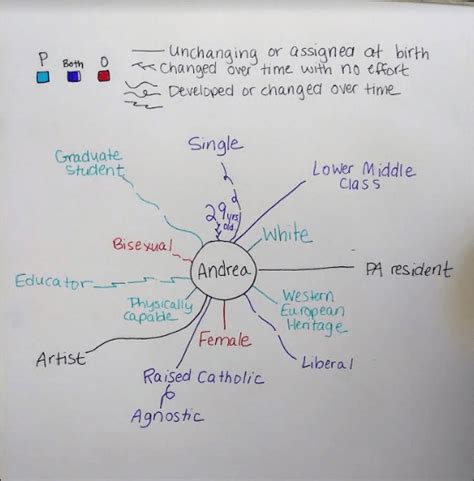 P Both O
Unchanging or assigned at birth
Changed over time with no effort
Developed or changed over time
Single
Graduate
Student
Lower Middle
Class
29 yrs
old
White
Bisexual
Andrea
PA resident
Educator
Physically
Capable
Western
European
Heritage
Female
Liberal
Artist
Raised Catholic
Agnostic